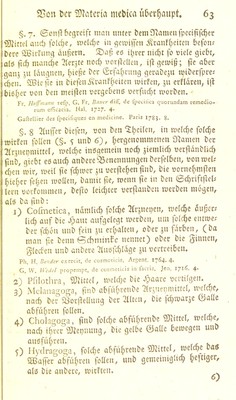 Von der Materia medica überhaupt. 63
§. 7. Sonst begreift man unter dem Namen specifischer
Mittel auch solche, welche in gewissen Krankheiten besondere
Wirkung äußern. Daß es ihrer nicht so viele giebt,
als sich manche Aerzte noch vorstellen, ist gewiß; sie aber
ganz zu läugnen, hieße der Erfahrung geradezu widersprechen.
Wie sie in diesen Krankheiten wirken, zu erklären, ist
bisher von den meisten vergebens versucht worden.
Fr. Hoffmann resp. G. Fr. Bauer diss. de specifica quorundam remediorum
efficacia. Hal. 1727. 4.
Gastelier des specifiques en medicine. Paris 1783. 8.
§. 8 Ausser diesen, von den Theilen, in welche solche
wirken sollen (§. 5 und 6), hergenommenen Namen der
Arzneymittel, welche insgemein noch ziemlich verständlich
sind, giebt es auch andere Benennungen derselben, von welchen
wir, weil sie schwer zu verstehen sind, die vornehmsten
hieher setzen wollen, damit sie, wenn sie in den Schriftstellern
vorkommen, desto leichter verstanden werden mögen,
als da sind:
1) Cosmetica, nämlich solche Arzneyen, welche äußerlich
auf die Haut aufgelegt werden, um solche entweder
schön und fein zu erhalten, oder zu färben, (da
man sie denn Schminke nennet) oder die Finnen,
Flecken und andere Ausschläge zu vertreiben.
Ph. H. Boecler exercit. de cosmeticis, Argent. 1764. 4.
G. W. Wedel progr. de cosmeticis. Jen. 1716. 4.
2) Psilothra, Mittel, welche die Haare vertilgen.
3) Melanagoga, sind abführende Arzneymittel, welche,
nach der Vorstellung der Alten, die schwarze Galle
abführen sollen.
4) Cholagoga, sind solche abführende Mittel, welche,
nach ihrer Meynung, die gelbe Galle bewegen und
ausführen.
5) Hydragoga, solche abführende Mittel, welche das
Wasser abführen sollen, und gemeiniglich heftiger,
als die andere, wirken.
6)